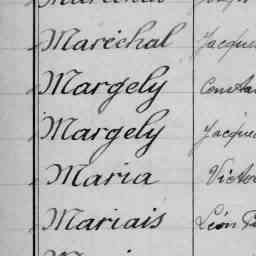 Maréchal Jacques
Margely
Margely Jacques
Maria Victo
Mariais Léon